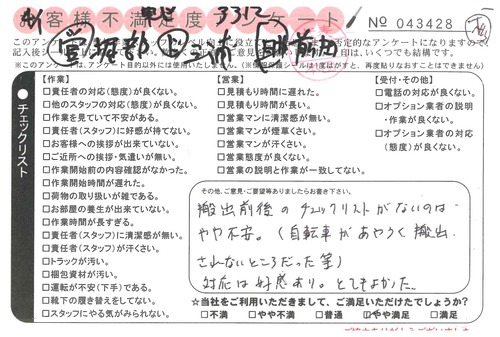 お客様不満足度アンケート
No 043428
※このアンケートは、アンケート目的以外には使用いたしません。
チェックリスト
【作業】
□責任者の対応(態度)が良くない。
□他のスタッフの対応(態度)が良くない。
□作業を見ていて不安がある。
□責任者(スタッフ)に好感が持てない。
□お客様への挨拶が出来ていない。
□ご近所への挨拶・気遣いが無い。
□作業開始前の内容確認がなかった。
□作業開始時間が遅れた。
□荷物の取り扱いが雑である。
□お部屋の養生が出来ていない。
□作業時間が長すぎる。
□責任者(スタッフ)に清潔感が無い。
□責任者(スタッフ)が汗くさい。
□トラックが汚い。
□梱包資材が汚い。
□運転が不安(下手)である。
□靴下の履き替えをしてない。
□スタッフにやる気がみられない。
【営業】
□見積もり時間に遅れた。
□見積もり時間が長い。
□営業マンに清潔感が無い。
□営業マンが煙草くさい。
□営業マンが汗くさい。
□営業態度が良くない。
□営業の説明と作業が一致してない。
【受付・その他】
□電話の対応が良くない。
□オプション業者の説明
・作業が良くない。
□オプション業者の対応
(態度)が良くない。
その他、ご意見・ご要望等ありましたらお書き下さい。
搬出前後のチェックリストがないのは
やや不安。(自転車があやうく搬出
されないところだった等)
対応は好感あり。とてもよかった。
☆当社をご利用いただきまして、ご満足いただけたでしょうか?
□不満 □やや不満 □普通 □やや満足 □満足